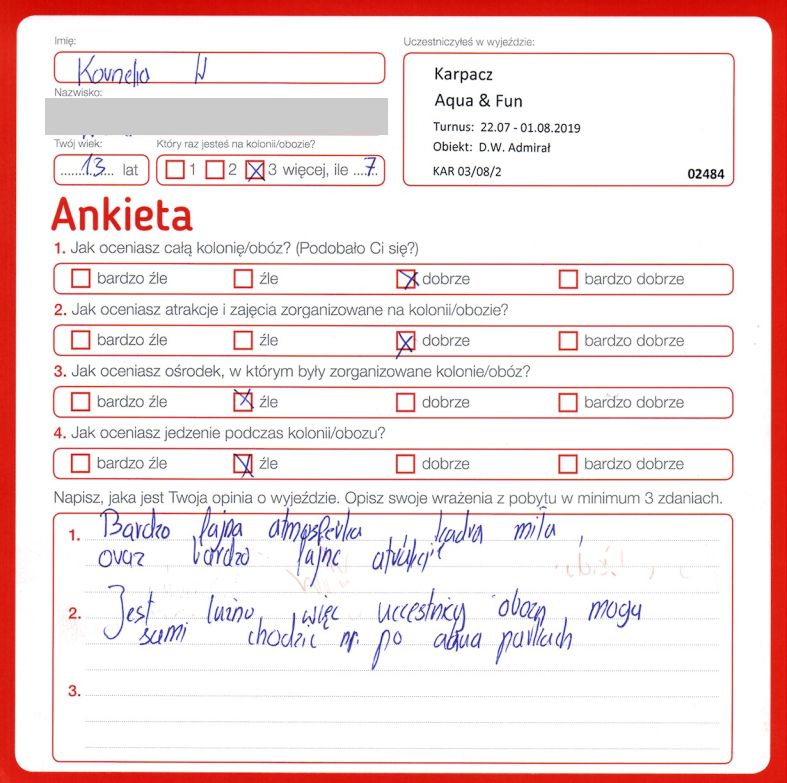 Imię:
Kornelia W
Nazwisko:
Twój wiek:
13 lat
Który raz jesteś na kolonii/obozie?
1 2 3 więcej, ile 7
Uczestniczyłeś w wyjeździe:
Karpacz
Aqua & Fun
Turnus: 22.07 - 01.08.2019
Obiekt: D.W. Admirał
KAR 03/08/2 02484
Ankieta
1. Jak oceniasz całą kolonię/obóz? (Podobało Ci się?)
bardzo źle źle dobrze bardzo dobrze
2. Jak oceniasz atrakcje i zajęcia zorganizowane na kolonii/obozie?
bardzo źle źle dobrze bardzo dobrze
3. Jak oceniasz ośrodek, w którym były zorganizowane kolonie/obóz?
bardzo źle źle dobrze bardzo dobrze
4. Jak oceniasz jedzenie podczas kolonii/obozu?
bardzo źle źle dobrze bardzo dobrze
Napisz, jaka jest Twoja opinia o wyjeździe. Opisz swoje wrażenia z pobytu w minimum 3 zdaniach.
1. Bardzo fajna atmosferka, kadra miła,
oraz bardzo fajne atrakcje
2. Jest luźno więc uczestnicy obozu mogą
sami chodzić np. po aqua parkach
3.